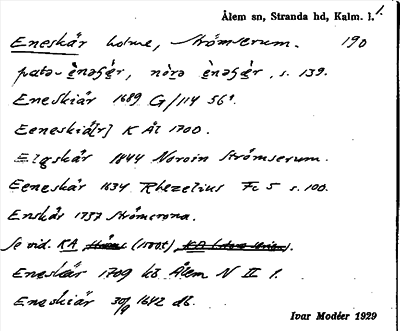 Ålem sn, Stranda hd, Kalm. l. 1.
Eneskär holme, Strömserum. 190
s. 139.
Eneskiär 1689 G/114 56¹
Eeneskiä[r] K Ål 1700.
1844 Noroin Strömserum.
Eeneskär 1634 Rhezelius Fc 5 s. 100.
Enskär 1757
Se vid. KA (1700t)
Eneskär 1709 kb Ålem N II 1.
Eneskiär 30/9 1642 db.
Ivar Modéer 1929